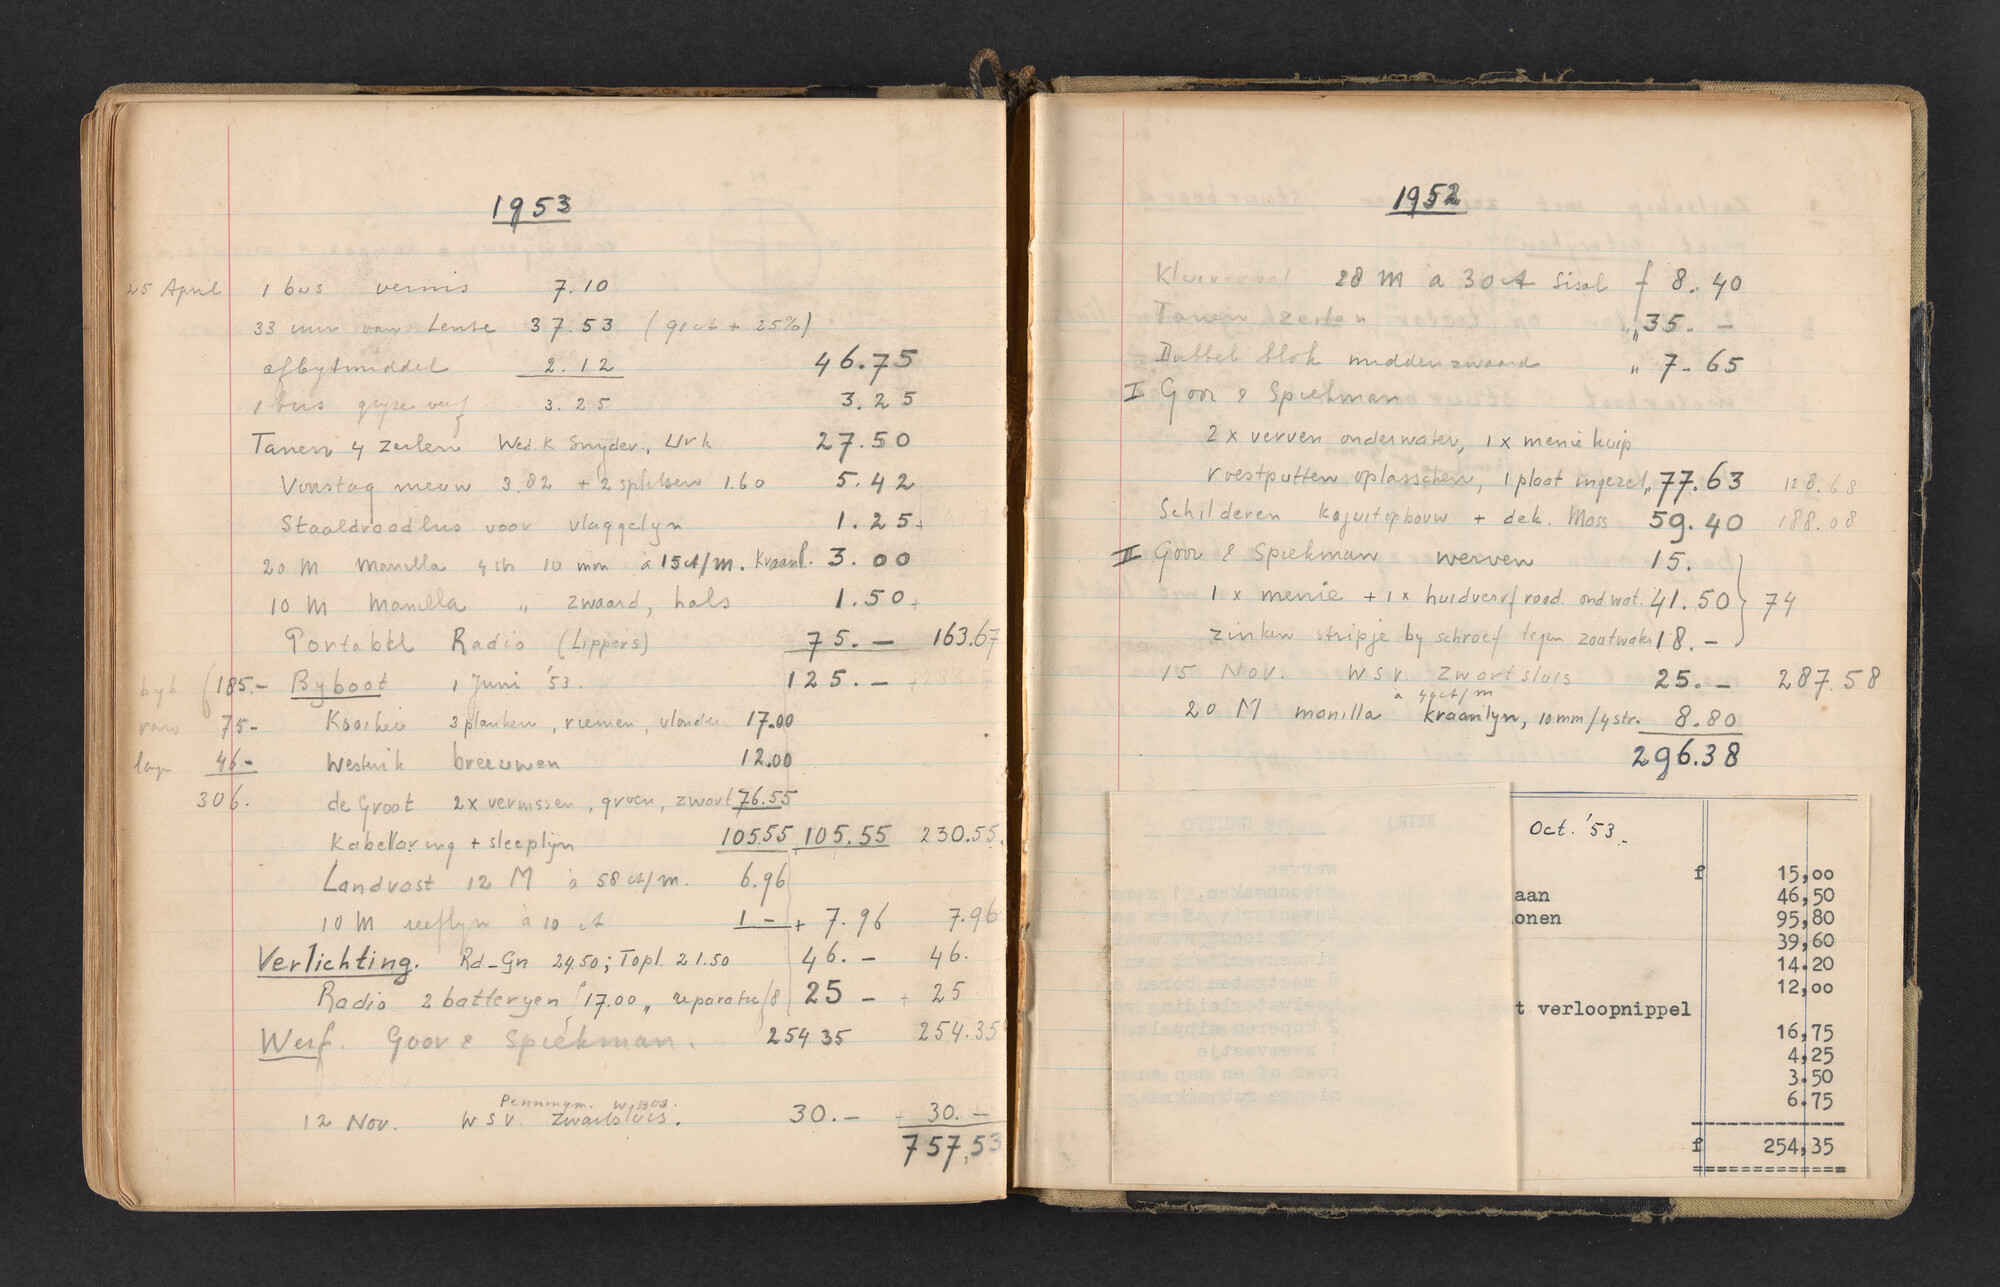 1953
25 April 1 bus vernis 7.10
33 uur van Lente 37.53 (91ct + 25%)
afbytmiddel 2.12 46.75
1 bus gryze verf 3.25 3.25
Tanen 4 zeilen Wed. K Snyder., Urk 27.50
Voorstag nieuw 3.82 + 2 splitsen 1.60 5.42
Staaldraadlus voor vlaggelyn 1.25+
20 M manilla 4 str 10 mm à 15ct/m. kraanl. 3.00
10 M Manilla „ zwaard, hals 1.50+
Portabel Radio (Lippers) 75.— 163.67
bijb 185.- Byboot 1 Juni '53. 125.—
75- 3 planken, riemen, vlonder 17.00
46.- Westerik breeuwen 12.00
306. de Groot 2x vernissen, groen, zwart 76.55
Kabellaring + sleeplijn 105.55 105.55 230.55.
Landvast 12 M à 58 ct/m. 6.96
10 M reeflyn à 10 ct 1 - + 7.96 7.96
Verlichting. Rd-Gn 24.50; Topl. 21.50 46.— 46.
Radio 2 batteryen f 17.00 „ reparatie f 8 25 - + 25
Werf. Goor & Spiekman. 254 35 254.35
Penningm.
12 Nov. W S V. Zwartsluis. 30.— + 30.—
757,53
1952
Kluiverval 28 M à 30ct Sisal f 8.40
Tanen zeilen „ 35.—
Dubbel blok middenzwaard „ 7.65
I Goor & Spiekman
2 x verven onderwater, 1 x menie kuip
roestputten oplasschen, 1 plaat ingezet „ 77.63 128.68
Schilderen kajuitopbouw + dek. Mass 59.40 188.08
II Goor & Spiekman werven 15.
1 x menie + 1 x huidverf rood ond wat. 41.50 } 74
zinken stripje by schroef tegen zoutwater 18.-
15 Nov. W S V. Zwartsluis 25.— 287.58
à 44ct/m
20 M manilla kraanlyn, 10mm/4str. 8.80
296.38
Oct. '53.
f 15,00
aan 46,50
onen 95,80
39,60
14.20
12,00
t verloopnippel
16,75
4,25
3.50
6.75
f 254,35